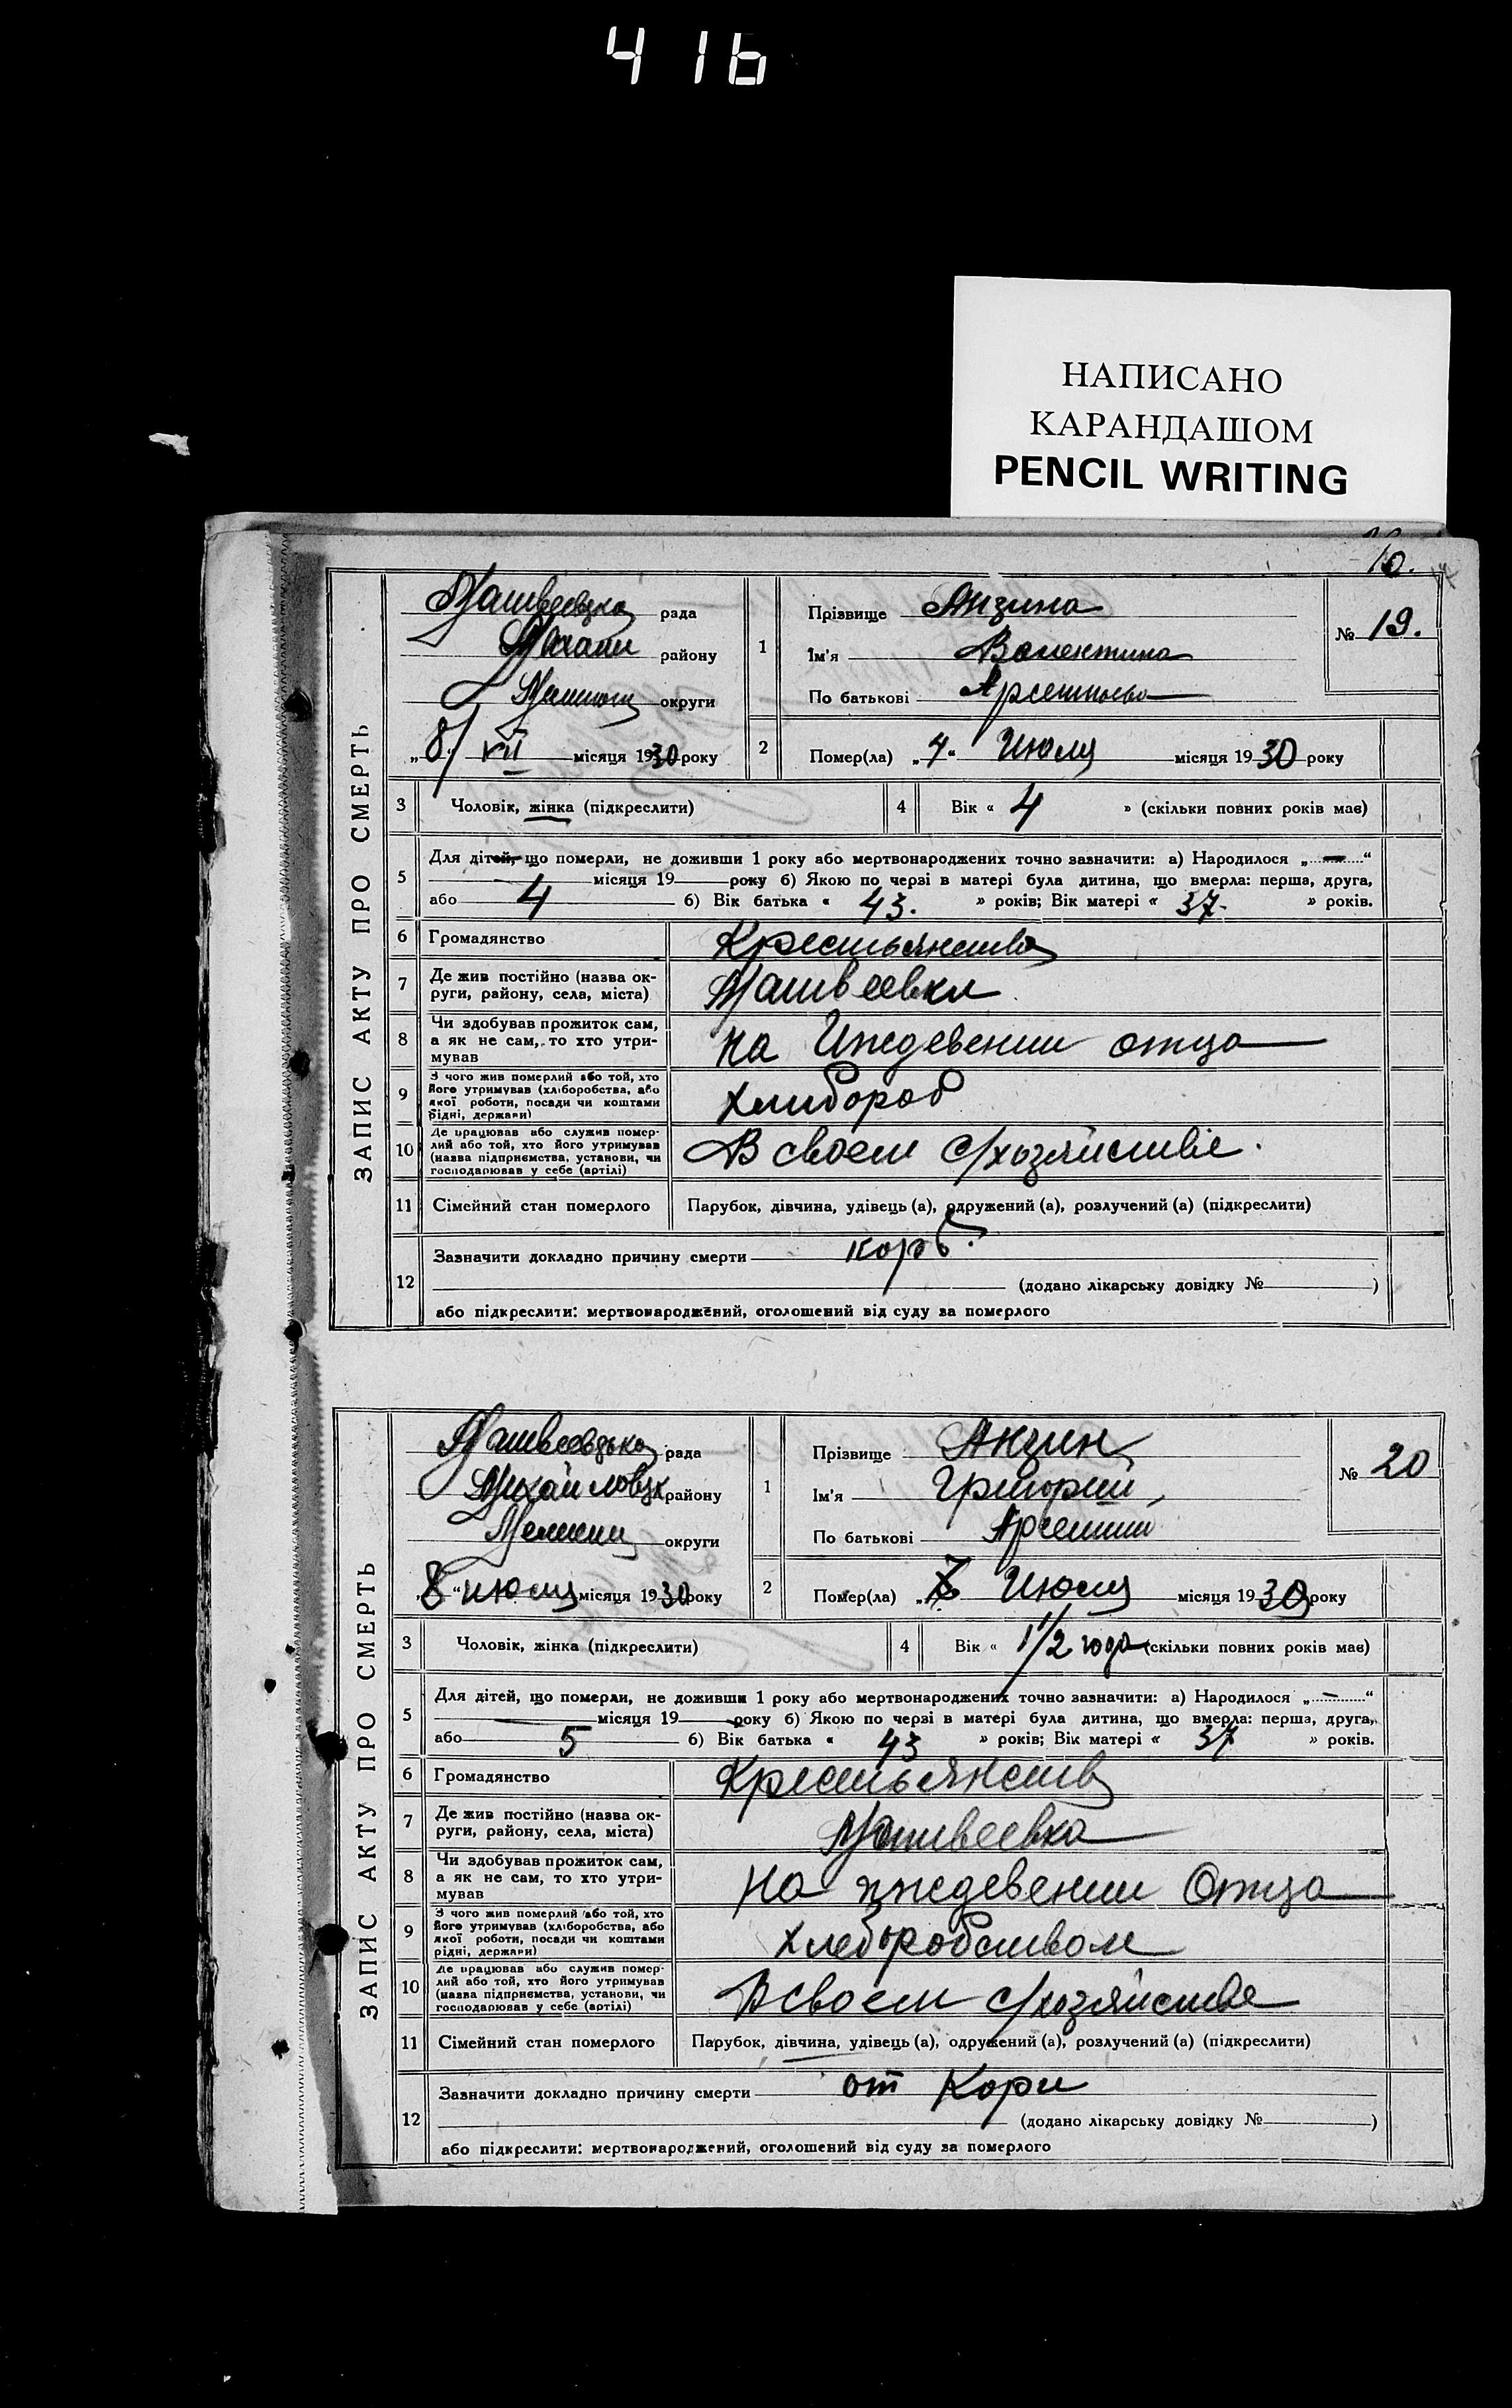 416
НАПИСАНО
КАРАНДАШОМ
PENCIL WRITING
16.
ЗАПИС АКТУ ПРО СМЕРТЬ
Матвеевська рада
району
округи
„8“ VII місяця 1930 року
1
Прізвище Анзина
Ім'я Валентина
По батькові
№ 19.
2
Помер(ла) „7“ Июля місяця 1930 року
3 Чоловік, жінка (підкреслити)
4 Вік « 4 » (скільки повних років має)
5
Для дітей, що померли, не доживши 1 року або мертвонароджених точно зазначити: а) Народилося „ — “
місяця 19 року б) Якою по черзі в матері була дитина, що вмерла: перша, друга,
або 4 б) Вік батька « 43. » років; Вік матері « 37. » років.
6 Громадянство Крестьянства
7 Де жив постійно (назва ок-
руги, району, села, міста) Матвеевка
8 Чи здобував прожиток сам,
а як не сам, то хто утри-
мував на Иждевении отца
9 З чого жив померлий або той, хто
його утримував (хліборобства, або
якої роботи, посади чи коштами
рідні, держави) хлибороб
10 Де працював або служив помер-
лий або той, хто його утримував
(назва підприємства, установи, чи
господарював у себе (артілі) В своем с/хозяйстве.
11 Сімейний стан померлого Парубок, дівчина, удівець (а), одружений (а), розлучений (а) (підкреслити)
12
Зазначити докладно причину смерти корь.
(додано лікарську довідку № )
або підкреслити: мертвонароджений, оголошений від суду за померлого
ЗАПИС АКТУ ПРО СМЕРТЬ
Матвеевська рада
Михайловск району
округи
„8“ июля місяця 1930 року
1
Прізвище Анзин
Ім'я Григорий
По батькові
№ 20
2
Помер(ла) „ Июля місяця 1930 року
3 Чоловік, жінка (підкреслити)
4 Вік « 1 1/2 года (скільки повних років має)
5
Для дітей, що померли, не доживши 1 року або мертвонароджених точно зазначити: а) Народилося „ — “
місяця 19 року б) Якою по черзі в матері була дитина, що вмерла: перша, друга,
або 5 б) Вік батька « 43 » років; Вік матері « 37 » років.
6 Громадянство Крестьянств
7 Де жив постійно (назва ок-
руги, району, села, міста) Матвеевка
8 Чи здобував прожиток сам,
а як не сам, то хто утри-
мував на иждевении Отца
9 З чого жив померлий або той, хто
його утримував (хліборобства, або
якої роботи, посади чи коштами
рідні, держави) хлеборобством
10 Де працював або служив помер-
лий або той, хто його утримував
(назва підприємства, установи, чи
господарював у себе (артілі) В своем с/хозяйстве
11 Сімейний стан померлого Парубок, дівчина, удівець (а), одружений (а), розлучений (а) (підкреслити)
12
Зазначити докладно причину смерти от Кори
(додано лікарську довідку № )
або підкреслити: мертвонароджений, оголошений від суду за померлого